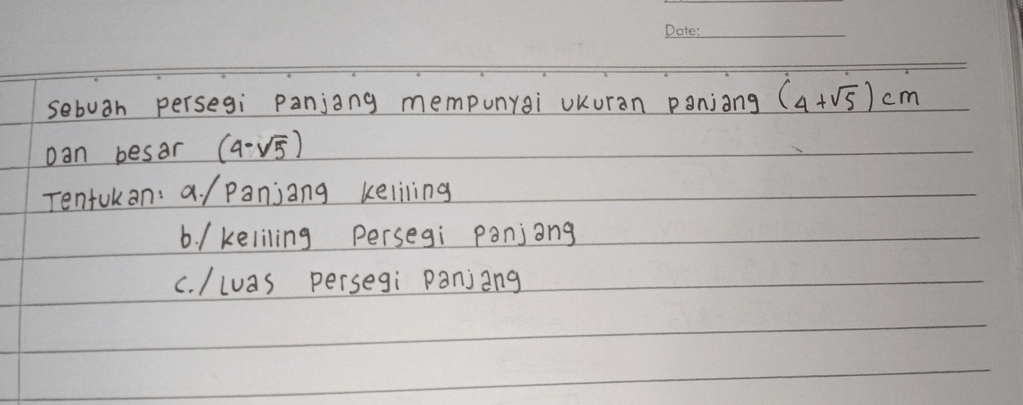 Date:
Sebuah persegi panjang mempunyai ukuran panjang (4+√5) cm
Dan besar (4-√5)
Tentukan: a./ Panjang keliling
b./ keliling Persegi panjang
c./ Luas persegi panjang